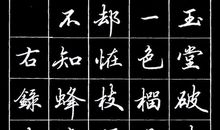 玉堂破
一色榴
却恠枝
不知蜂
右錄